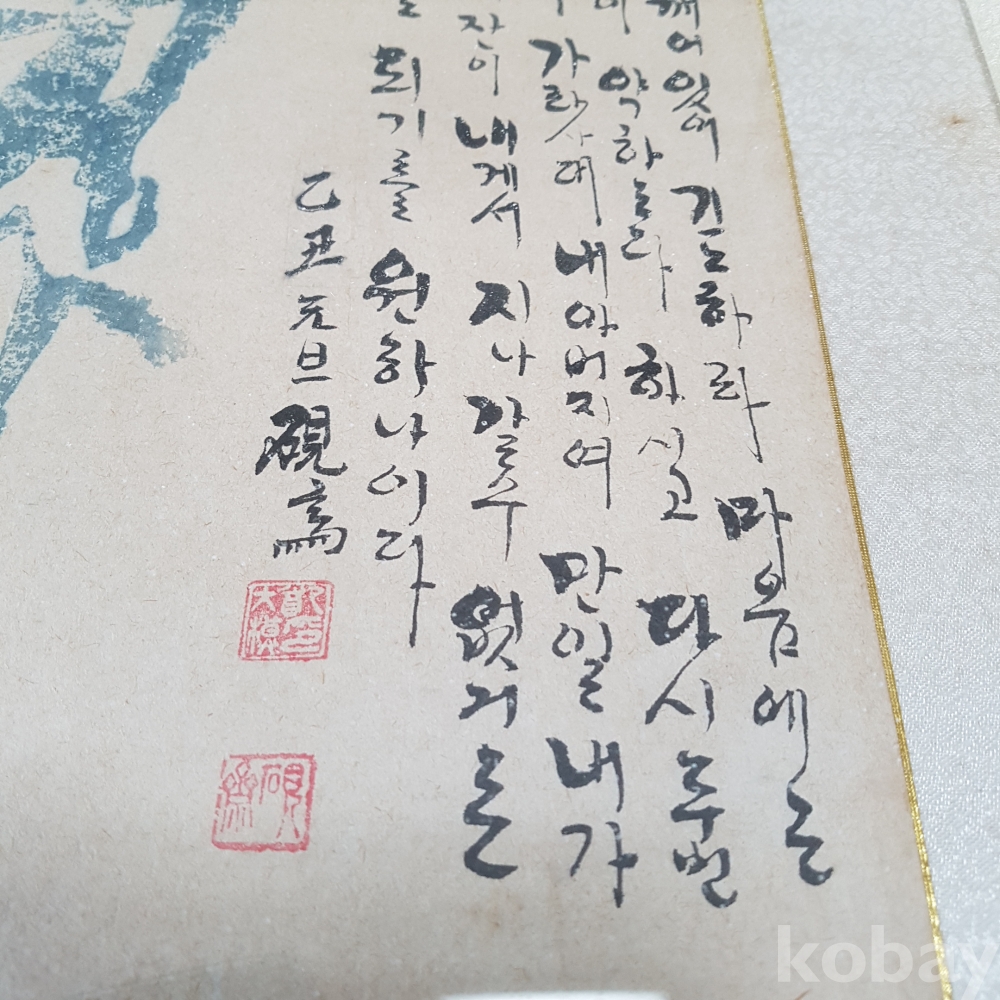 깨어 있어 기도하라 마음에는
약하노라 하시고 다시 두번
가라사대 내 아버지여 만일 내가
잔이 내게서 지나갈수 없거든
되기를 원하나이다
乙丑 元旦 硯齋